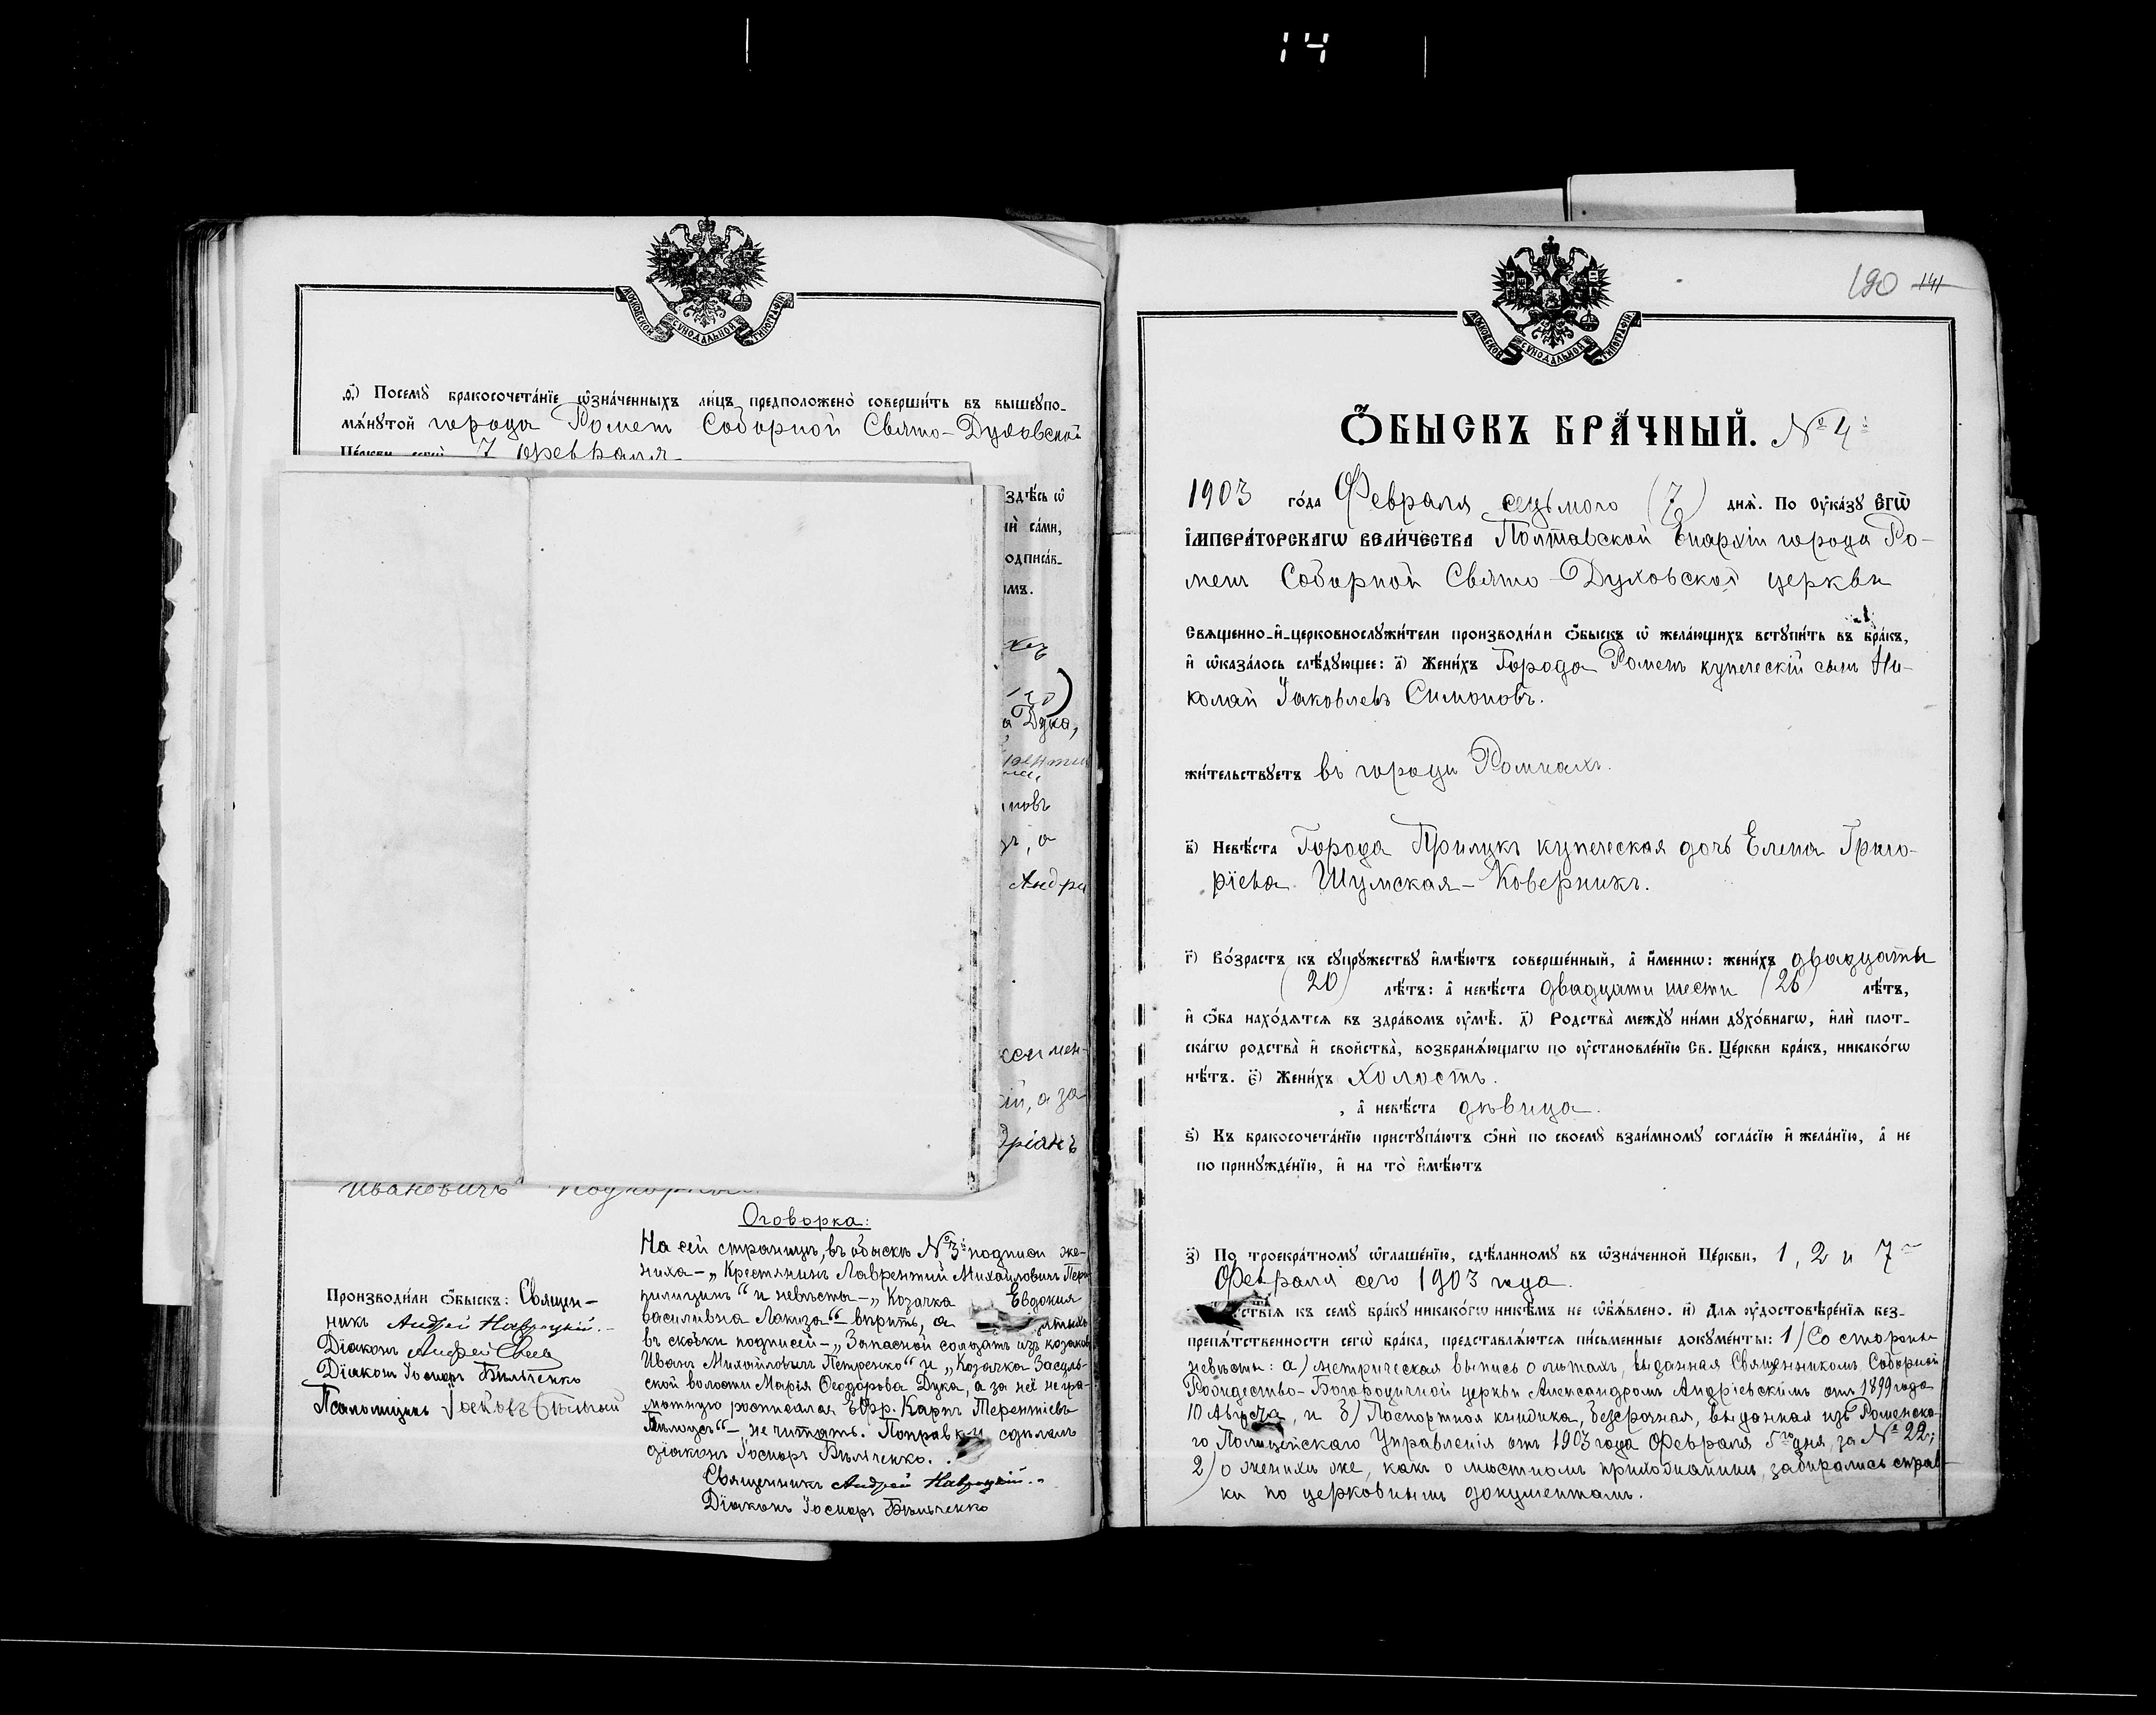 14
МОСКОВСКОЙ СѴНОДАЛЬНОЙ ТИПОГРАФІИ
ѳ҃) Посемꙋ̀ бракосочета́нїе ѡ҆зна́ченныхъ ли́цъ предположено̀ соверши́ть въ вышеꙋпо-
мѧ́нꙋтой города Ромен Соборной Свято-Духовской
Це́ркви сегѡ̀ 7 февраля
здѣ́сь ѡ҆
са́ми,
одписа́в-
имъ.
а Дука,
новъ
, а
Андрі
ксимен-
ій, а за
дріанъ
Ивановичъ
Оговорка:
На сей страницѣ, въ обыскѣ № 3й подписи же-
ниха - „Крестянинъ Лаврентий Михайловичъ Пере
пилицинъ“ и невѣсты - „Козачка Евдокия
василивна Лакиза“ - вѣрить, а ятыхъ
въ скобки подписей - „Запасной солдатъ изъ козаковъ
Иванъ Михайловичъ Петренко“ и „Козачка Засуль-
ской волости Марія Ѳеодорова Дука, а за неё негра-
мотную росписался Карпъ Терентіевъ
- не читать. Поправки сдѣлалъ
діаконъ Іосифъ Бѣльченко.
Священникъ Андрей Навроцкій.
Діаконъ Іосифъ Бѣльченко
Производи́ли ѻ҆́быскъ: Священ-
никъ Андрей Навроцкій.
Діаконъ Андрей
Діаконъ Іосифъ Бѣльченко
Псаломщикъ
190 141
МОСКОВСКОЙ СѴНОДАЛЬНОЙ ТИПОГРАФІИ
Ѻ҆́БЫСКЪ БРА́ЧНЫЙ. № 4й
1903 го́да Февраля седьмого (7) днѧ̀. По ᲂу҆ка́зꙋ Є҆ГѠ̀
І҆МПЕРА́ТОРСКАГѠ ВЕЛИ́ЧЕСТВА Полтавской Епархіи города Ро-
мен Соборной Свято-Духовской церкви
Свѧщенно-и҆-церковнослꙋжи́тели производи́ли ѻ҆́быскъ ѡ҆ жела́ющихъ встꙋпи́ть въ бра́къ,
и҆ ѡ҆каза́лось слѣ́дꙋющее: а҃) Жени́хъ Города Ромен купеческій сынъ Ни-
колай Іаковлевъ Симоновъ.
жи́тельствꙋетъ въ городѣ Ромнахъ.
в҃) Невѣ́ста Города Прилукъ купеческая дочь Елена Григо-
ріева Шумская-Коверникъ.
г҃) Во́зрастъ къ сꙋпрꙋ́жествꙋ и҆мѣ́ютъ соверше́нный, а҆ и҆́меннѡ: жени́хъ двадцати
(20) лѣ́тъ: а҆ невѣ́ста двадцати шести (26) лѣ́тъ,
и҆ ѻ҆́ба нахо́дѧтсѧ въ здра́вомъ ᲂу҆мѣ̀. д҃) Родства̀ междꙋ̀ ни́ми дꙋхо́внагѡ, и҆лѝ плот-
ска́гѡ родства̀ и҆ свойства̀, возбранѧ́ющагѡ по ᲂу҆становле́нїю Св. Це́ркви бра́къ, никако́гѡ
нѣ́тъ. є҃) Жени́хъ холостъ.
, а҆ невѣ́ста дѣвица.
ѕ҃) Къ бракосочета́нїю пристꙋпа́ютъ ѻ҆нѝ по своемꙋ̀ взаи́мномꙋ согла́сїю и҆ жела́нїю, а҆ не
по принꙋжде́нїю, и҆ на то̀ и҆мѣ́ютъ
з҃) По троекра́тномꙋ ѡ҆глаше́нїю, сдѣ́ланномꙋ въ ѡ҆зна́ченной Це́ркви, 1, 2 и 7го
Февраля сего 1903 года.
ствїѧ къ семꙋ̀ бра́кꙋ никако́гѡ никѣ́мъ не ѡ҆б̾ѧ́влено. и҃) Длѧ ᲂу҆достовѣ́ренїѧ без-
препѧ́тственности сегѡ̀ бра́ка, представлѧ́ютсѧ пи́сьменные докꙋме́нты: 1) Со стороны
невѣсты: а) метрическая выпись о лѣтахъ, выданная Священникомъ Соборной
Рождество-Богородичной церкви Александромъ Андріевскимъ отъ 1899 года
10 Августа, и б) Паспортная книжка, безсрочная, выданная изъ Роменска-
го Полицейскаго Управленія отъ 1903 года Февраля 5го дня, за № 22;
2) о женихѣ же, какъ о мѣстномъ прихожанинѣ, забирались справ-
ки по церковнымъ документамъ.